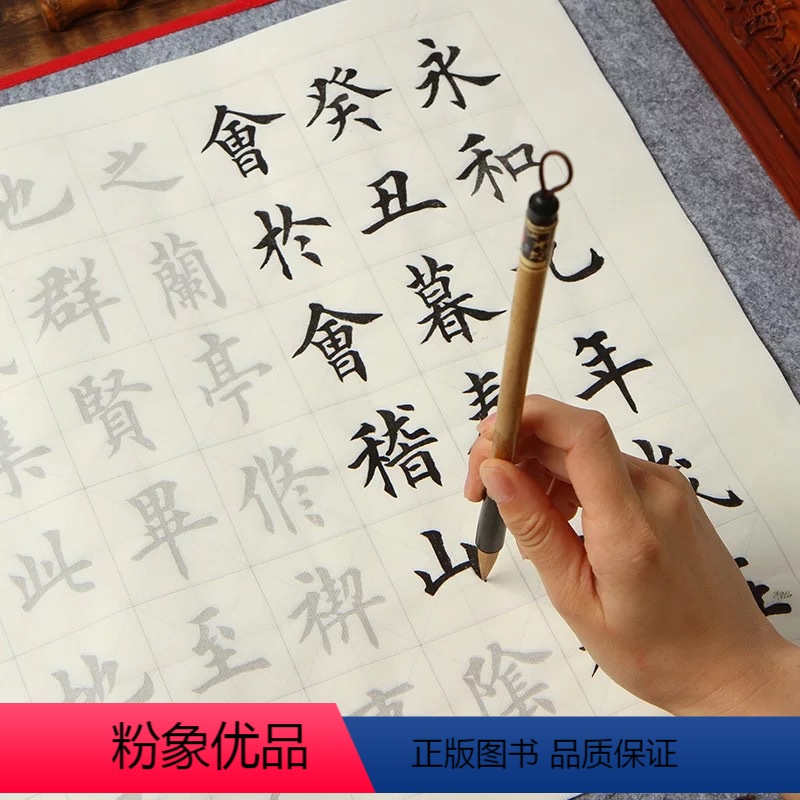 永和九年歲在
癸丑暮春
會於會稽山陰
之蘭亭修禊事
也群賢畢至
集此地
粉象优品
正版图书 品质保证